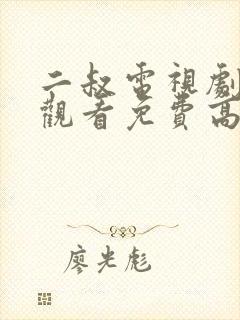 二叔電視劇
觀看免費高
廖光彪